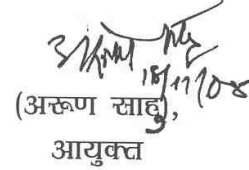 18/11/04
(अरूण साहु),
आयुक्त